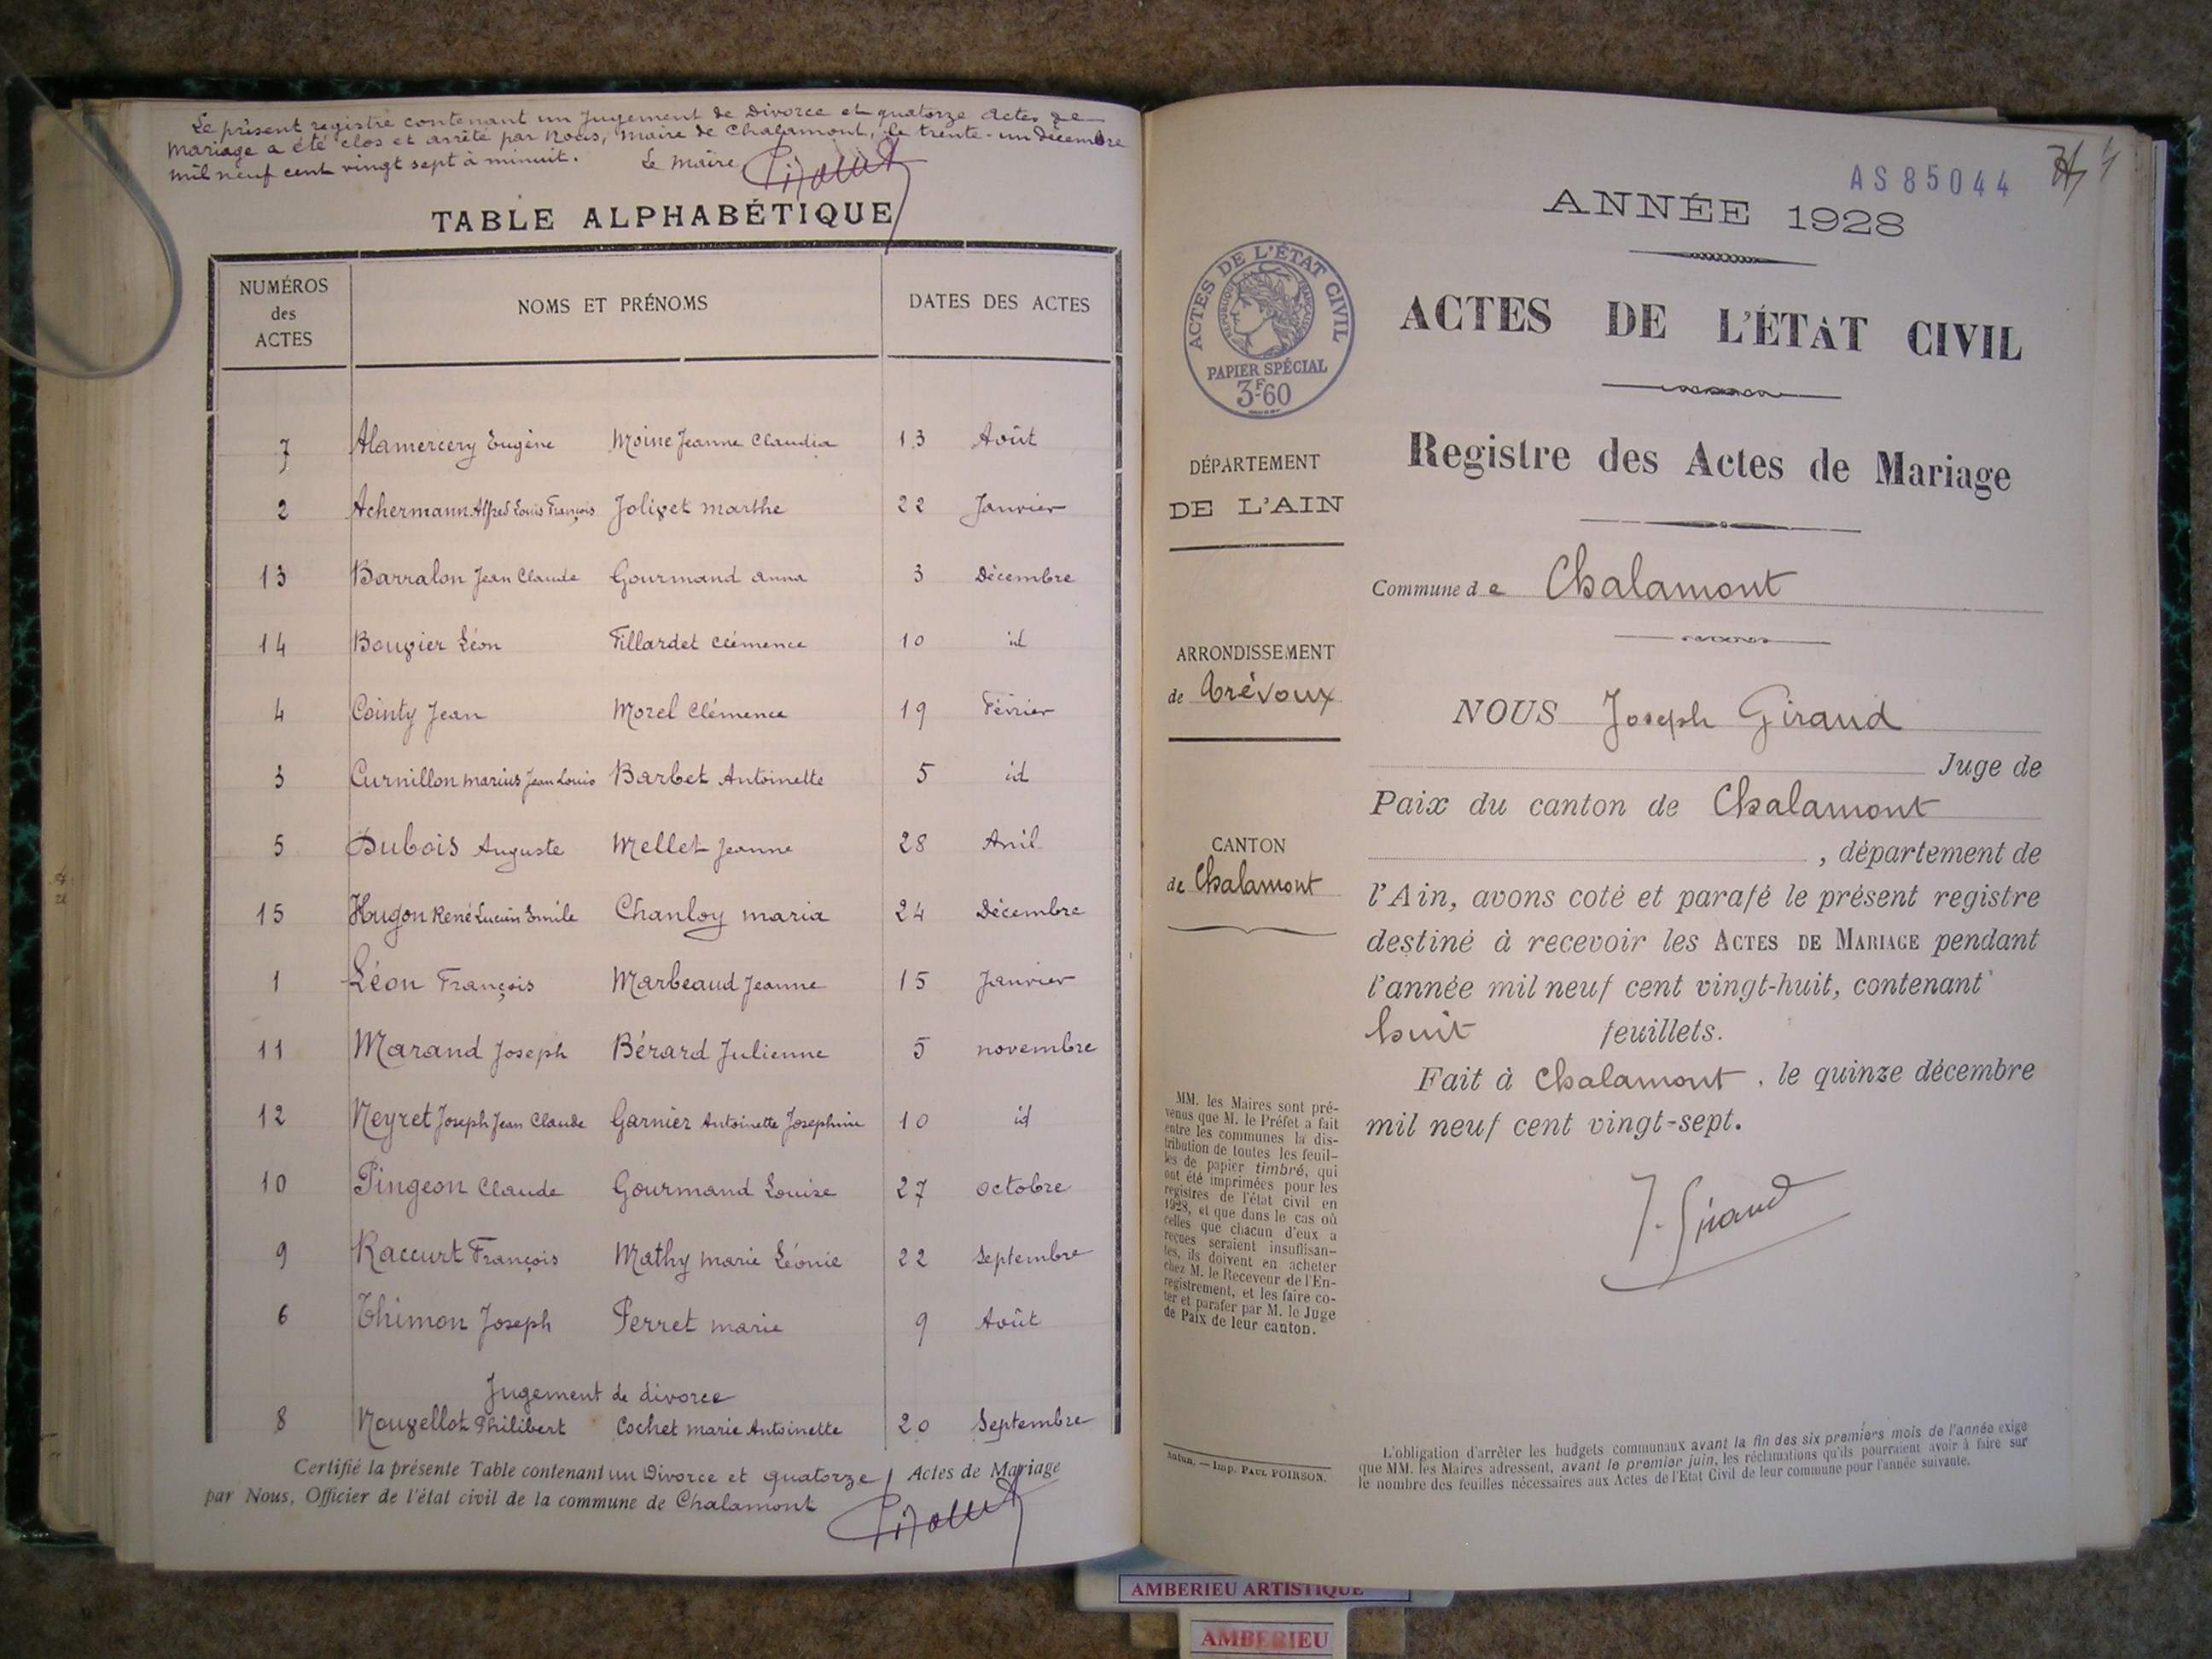 Le présent registre contenant un Jugement de Divorce et quatorze Actes de
Mariage a été clos et arrêté par Nous, Maire de Chalamont, le trente-un décembre
mil neuf cent vingt sept à minuit. Le Maire
TABLE ALPHABÉTIQUE
NUMÉROS des ACTES NOMS ET PRÉNOMS DATES DES ACTES
7 Alamercery Eugène Moine Jeanne Claudia 13 Août
2 Achermann Alfred Louis François Jolivet Marthe 22 Janvier
13 Barralon Jean Claude Gourmand Anna 3 Décembre
14 Bouvier Léon Fillardet Clémence 10 id
4 Cointy Jean Morel Clémence 19 Février
3 Curnillon Marius Jean Louis Barbet Antoinette 5 id
5 Dubois Auguste Mellet Jeanne 28 Avril
15 Hugon René Lucien Emile Chanloy Maria 24 Décembre
1 Léon François Marbeaud Jeanne 15 Janvier
11 Marand Joseph Bérard Julienne 5 novembre
12 Neyret Joseph Jean Claude Garnier Antoinette Josephine 10 id
10 Pingeon Claude Gourmand Louise 27 octobre
9 Raccurt François Mathy Marie Léonie 22 Septembre
6 Thimon Joseph Perret Marie 9 Août
Jugement de divorce
8 Nouvellot Philibert Cochet Marie Antoinette 20 Septembre
Certifié la présente Table contenant un Divorce et quatorze Actes de Mariage
par Nous, Officier de l'état civil de la commune de Chalamont
AS 85044
ANNÉE 1928
ACTES DE L'ÉTAT CIVIL
RÉPUBLIQUE FRANÇAISE
PAPIER SPÉCIAL
3F60
ACTES DE L'ÉTAT CIVIL
Registre des Actes de Mariage
DÉPARTEMENT
DE L'AIN
Commune de Chalamont
ARRONDISSEMENT
de Trévoux
NOUS Joseph Giraud
Juge de
Paix du canton de Chalamont
, département de
CANTON
de Chalamont
l'Ain, avons coté et parafé le présent registre
destiné à recevoir les ACTES DE MARIAGE pendant
l'année mil neuf cent vingt-huit, contenant
huit feuillets.
Fait à Chalamont, le quinze décembre
mil neuf cent vingt-sept.
J. Giraud
MM. les Maires sont pré-
venus que M. le Préfet a fait
entre les communes la dis-
tribution de toutes les feuil-
les de papier timbré, qui
ont été imprimées pour les
registres de l'état civil en
1928, et que dans le cas où
celles que chacun d'eux a
reçues seraient insuffisan-
tes, ils doivent en acheter
chez M. le Receveur de l'En-
registrement, et les faire co-
ter et parafer par M. le Juge
de Paix de leur canton.
Autun. — Imp. PAUL POIRSON.
L'obligation d'arrêter les budgets communaux avant la fin des six premiers mois de l'année exige
que MM. les Maires adressent, avant le premier juin, les réclamations qu'ils pourraient avoir à faire sur
le nombre des feuilles nécessaires aux Actes de l'Etat Civil de leur commune pour l'année suivante.
AMBERIEU ARTISTIQUE
AMBERIEU